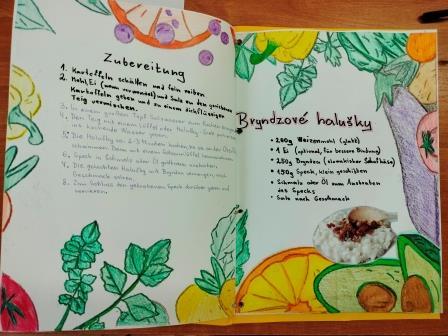 Zubereitung
1. Kartoffeln schälen und fein reiben
2. Mehl, Ei (wenn verwendet) und Salz zu den geriebenen
Kartoffeln geben und zu einem dickflüssigen
Teig vermischen.
3. In einem großen Topf Salzwasser zum Kochen bringen
4. Den Teig mit einem Löffel oder Halušky-Sieb portionsweise
ins kochende Wasser geben
5. Die Halušky ca. 2-3 Minuten kochen, bis sie an der Oberfläche
schwimmen. Dann mit einem Schaumlöffel herausnehmen
6. Speck in Schmalz oder Öl goldbraun anbraten.
7. Die gekochten Halušky mit Bryndza vermengen, nach
Geschmack salzen.
8. Zum Schluss den gebratenen Speck darüber geben und
servieren.
Bryndzové halušky
• 200g Weizenmehl (glatt)
• 1 Ei (optional, für bessere Bindung)
• 250g Bryndza (slowakischer Schafkäse)
• 150g Speck, klein geschnitten
• Schmalz oder Öl zum Ausbraten
des Specks
• Salz nach Geschmack